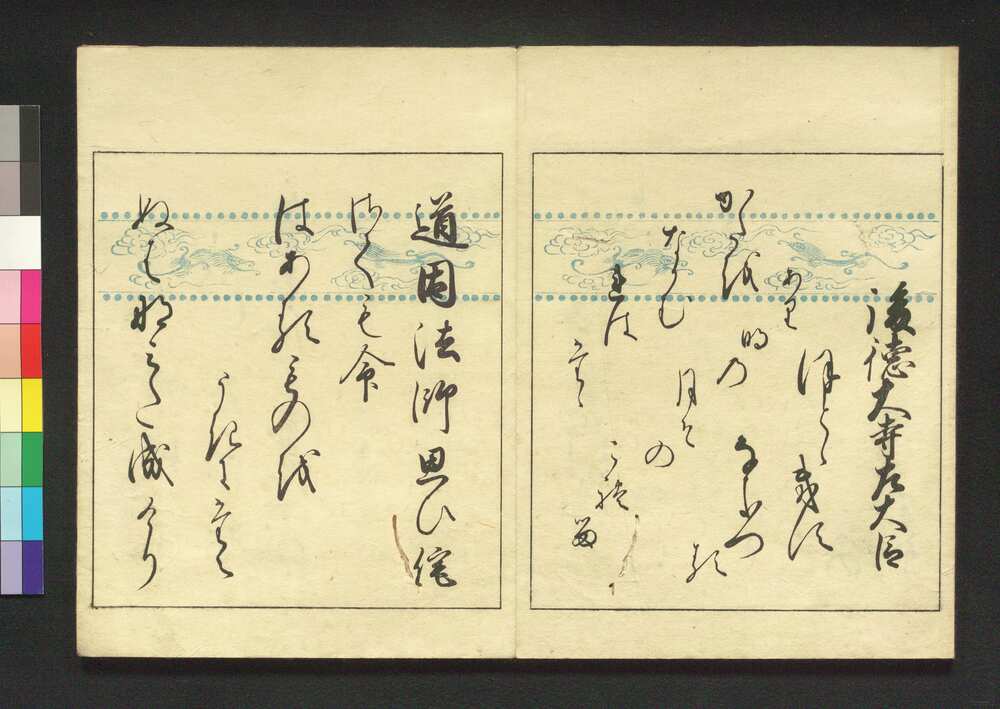 後徳大寺左大臣
ほとゝ幾須
なきつる
かたを
なかむ
れは
たゝ
あり
明の
月そ
の
これる
道因法師思ひ侘
さても命
はあるものを
うきにたへ
ぬはなみた成けり